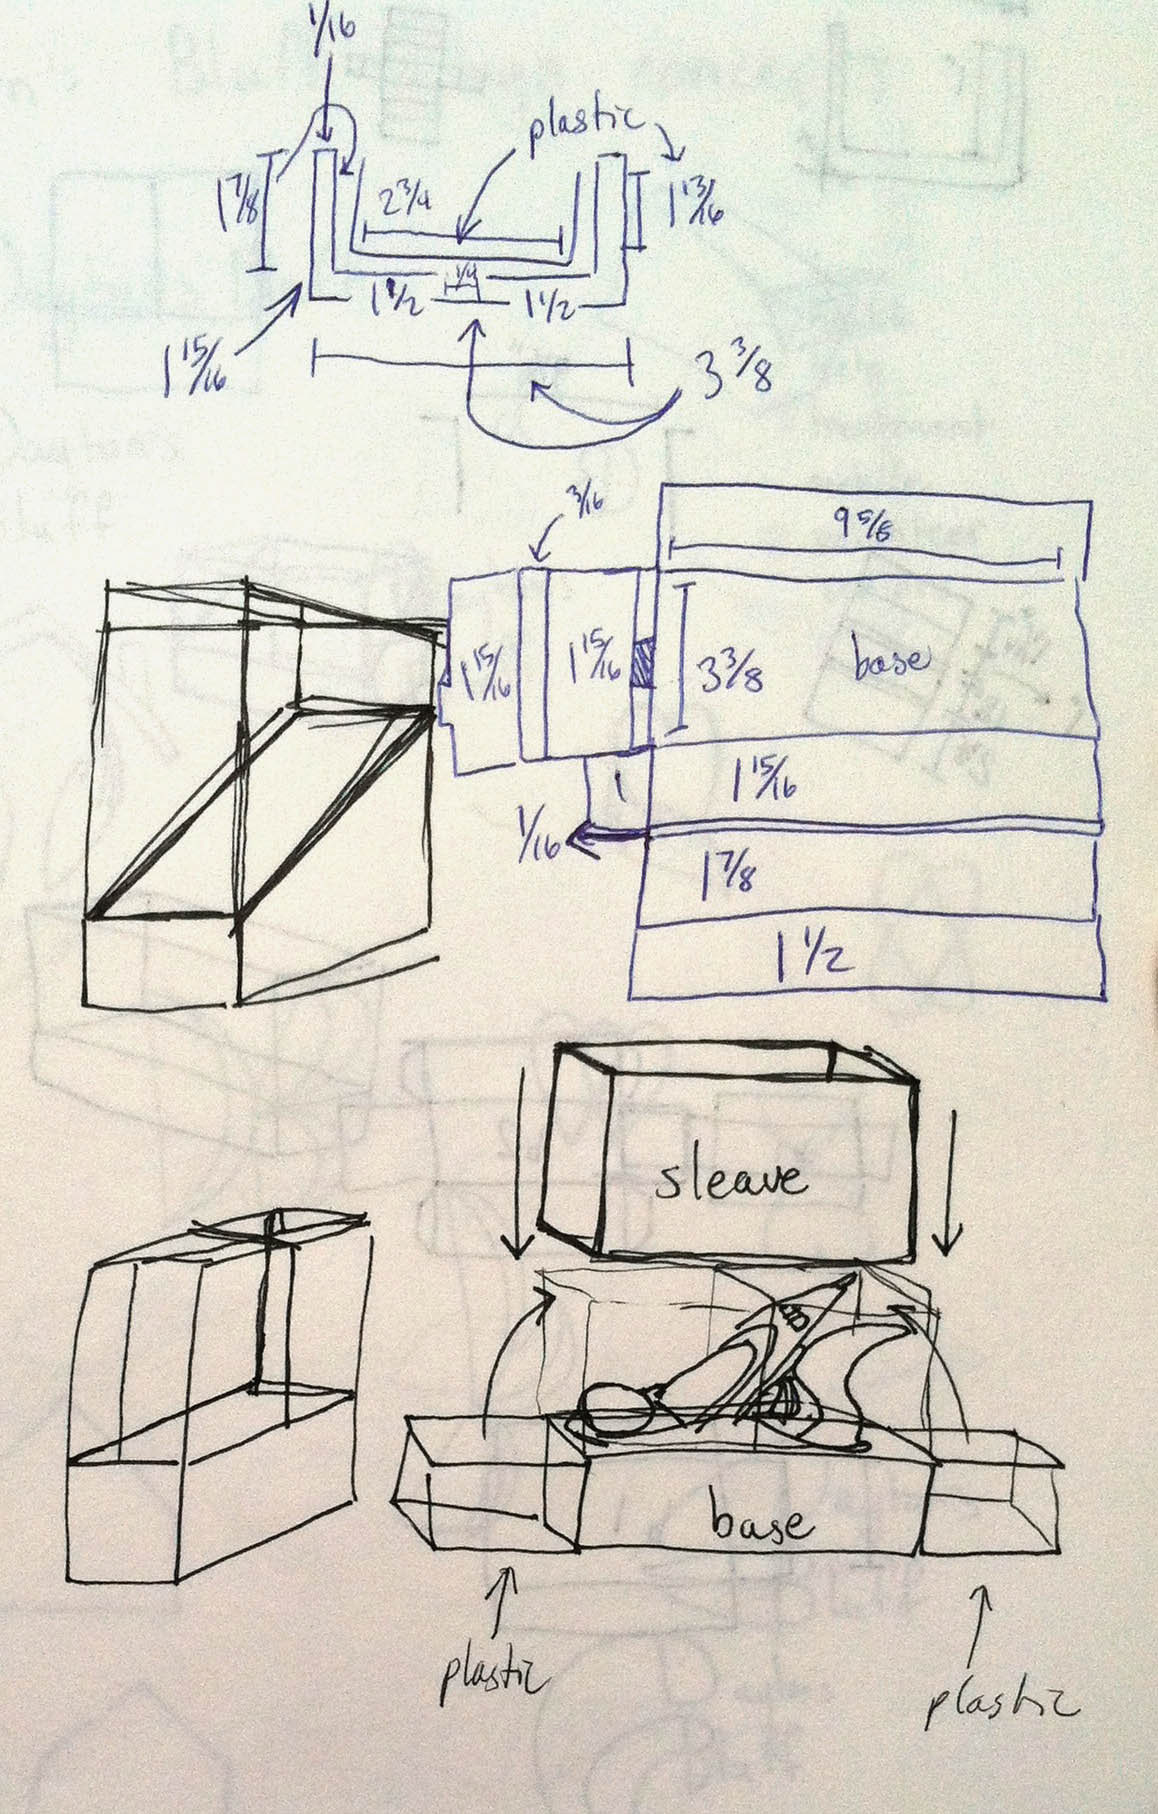 1/16
plastic
1 7/8
2 3/4
1 13/16
1/4
1 1/2
1 1/2
1 15/16
3 3/8
3/16
9 5/8
1 15/16
1 15/16
3 3/8
base
1
1 15/16
1/16
1 7/8
1 1/2
sleave
base
plastic
plastic